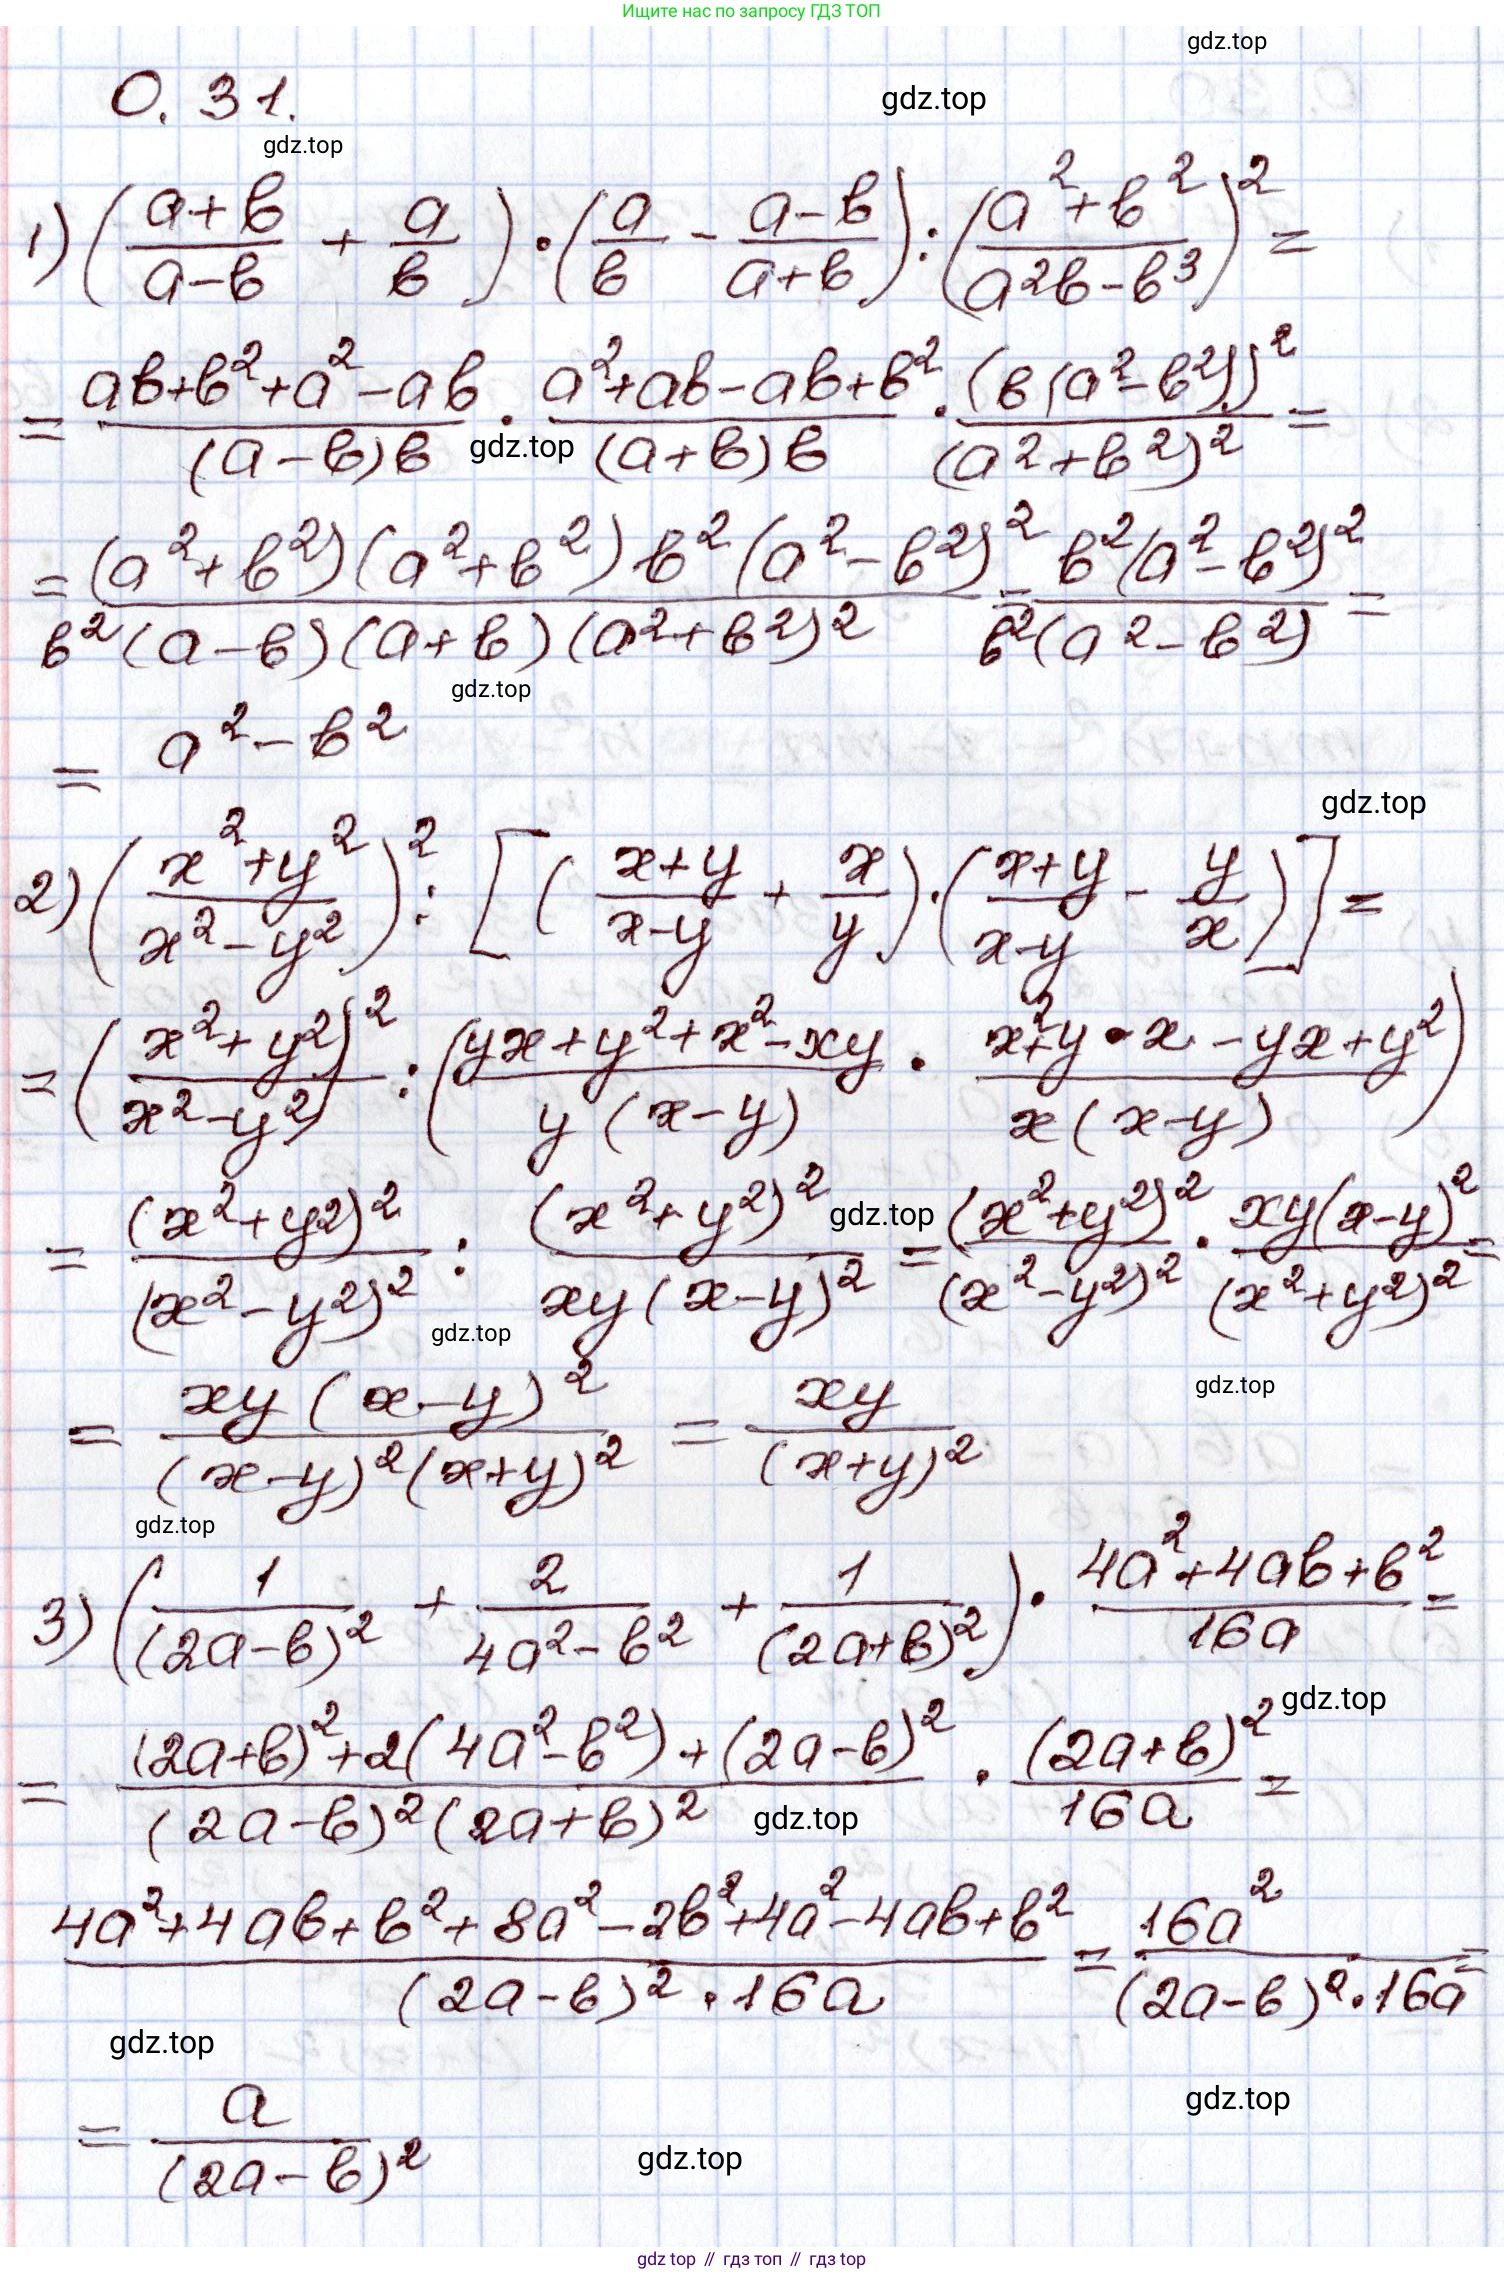 Ищите нас по запросу ГДЗ ТОП
gdz.top
0.31.
gdz.top
gdz.top
1) ((a+b)/(a-b) + a/b) · (a/b - (a-b)/(a+b)) : ((a²+b²)/(a²b-b³))² =
= (ab+b²+a²-ab)/((a-b)b) · (a²+ab-ab+b²)/((a+b)b) · (b(a²-b²))²/(a²+b²)² =
gdz.top
= (a²+b²)(a²+b²)b²(a²-b²)²/(b²(a-b)(a+b)(a²+b²)²) = b²(a²-b²)²/(b²(a²-b²)) =
gdz.top
= a²-b²
gdz.top
2) ((x²+y²)/(x²-y²))² : [((x+y)/(x-y) + x/y) · ((x+y)/(x-y) - y/x)] =
= ((x²+y²)/(x²-y²))² : ((yx+y²+x²-xy)/(y(x-y)) · (x²+y·x-yx+y²)/(x(x-y)))
= (x²+y²)²/(x²-y²)² : (x²+y²)²/(xy(x-y)²) = (x²+y²)²/(x²-y²)² · xy(x-y)²/(x²+y²)² =
gdz.top
gdz.top
gdz.top
= xy(x-y)²/((x-y)²(x+y)²) = xy/(x+y)²
gdz.top
3) (1/(2a-b)² + 2/(4a²-b²) + 1/(2a+b)²) · (4a²+4ab+b²)/16a =
gdz.top
= ((2a+b)²+2(4a²-b²)+(2a-b)²)/((2a-b)²(2a+b)²) · (2a+b)²/16a =
gdz.top
(4a²+4ab+b²+8a²-2b²+4a²-4ab+b²)/((2a-b)²·16a) = 16a²/((2a-b)²·16a) =
gdz.top
gdz.top
= a/(2a-b)²
gdz.top
gdz.top // гдз топ // гдз top